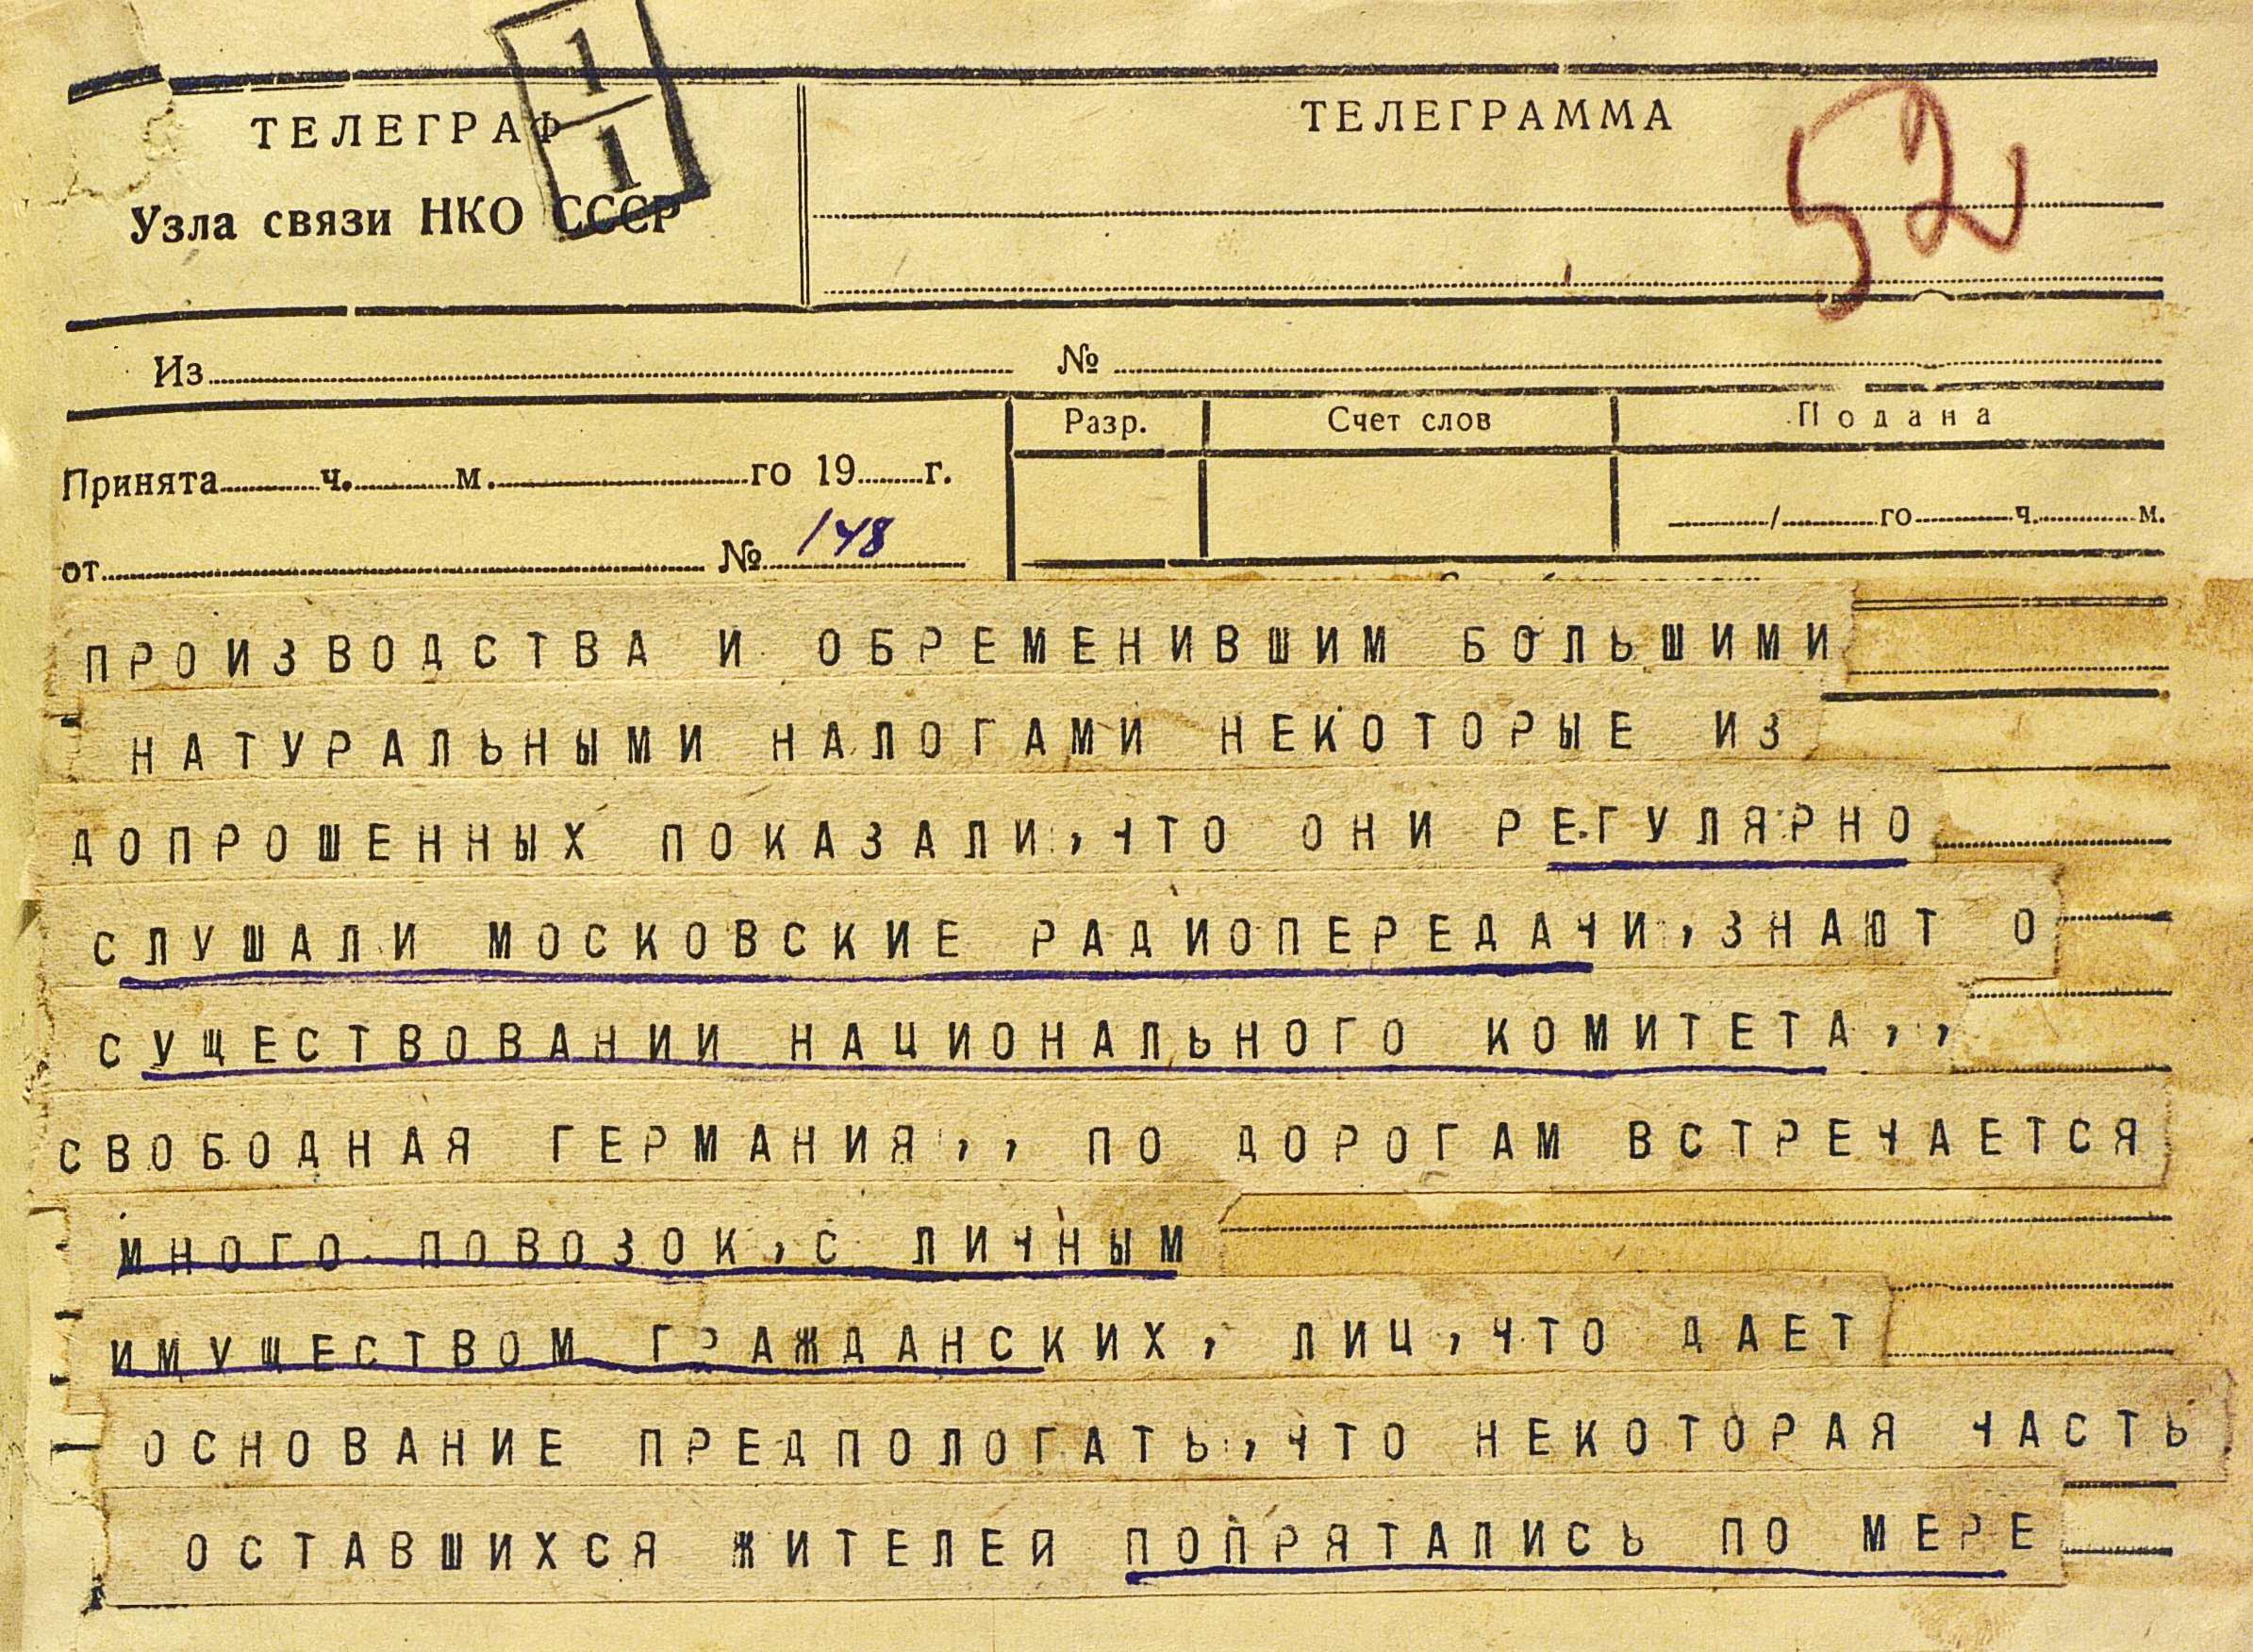 1
1
ТЕЛЕГРАФ
Узла связи НКО СССР
ТЕЛЕГРАММА
52
Из № 
Разр. Счет слов Подана
Принята ч. м. го 19 г.
/ го ч. м.
от № 148
ПРОИЗВОДСТВА И ОБРЕМЕНИВШИМ БОЛЬШИМИ
НАТУРАЛЬНЫМИ НАЛОГАМИ НЕКОТОРЫЕ ИЗ
ДОПРОШЕННЫХ ПОКАЗАЛИ,ЧТО ОНИ РЕГУЛЯРНО
СЛУШАЛИ МОСКОВСКИЕ РАДИОПЕРЕДАЧИ,ЗНАЮТ О
СУЩЕСТВОВАНИИ НАЦИОНАЛЬНОГО КОМИТЕТА,,
СВОБОДНАЯ ГЕРМАНИЯ,, ПО ДОРОГАМ ВСТРЕЧАЕТСЯ
МНОГО ПОВОЗОК,С ЛИЧНЫМ
ИМУЩЕСТВОМ ГРАЖДАНСКИХ, ЛИЦ,ЧТО ДАЕТ
ОСНОВАНИЕ ПРЕДПОЛОГАТЬ,ЧТО НЕКОТОРАЯ ЧАСТЬ
ОСТАВШИХСЯ ЖИТЕЛЕЙ ПОПРЯТАЛИСЬ ПО МЕРЕ